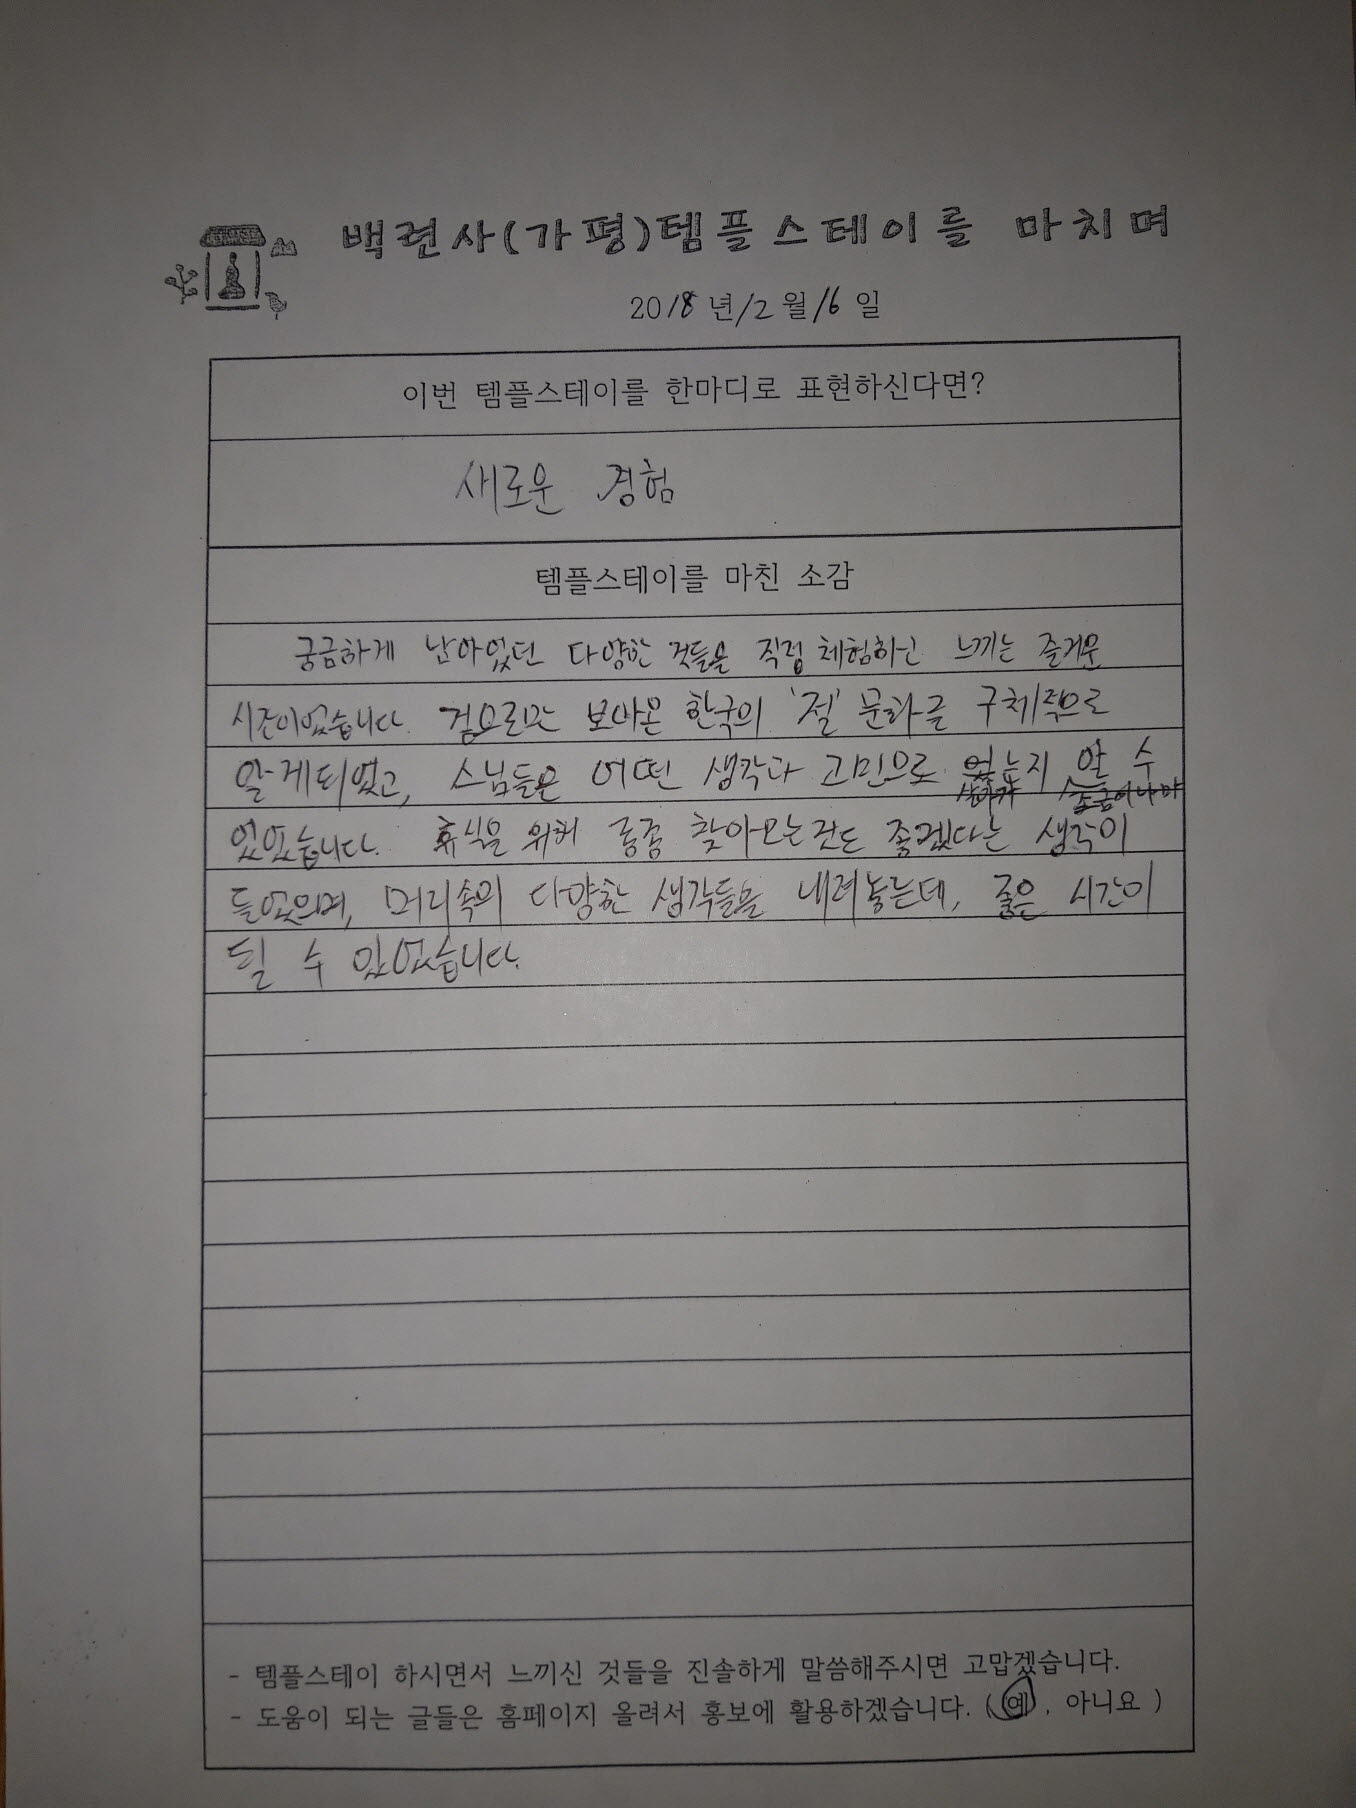 백련사(가평)템플스테이를 마치며
2018년 12월 16일
이번 템플스테이를 한마디로 표현하신다면?
새로운 경험
템플스테이를 마친 소감
궁금하게 남아있던 다양한 것들을 직접 체험하고 느끼는 즐거운
시간이었습니다. 겉으로만 보아온 한국의 '절' 문화를 구체적으로
알게되었고, 스님들은 어떤 생각과 고민으로 있는지 알 수
살아가 조금이나마
있었습니다. 휴식을 위해 종종 찾아오는것도 좋겠다는 생각이
들었으며, 머리속의 다양한 생각들을 내려놓는데, 좋은 시간이
될 수 있었습니다.
- 템플스테이 하시면서 느끼신 것들을 진솔하게 말씀해주시면 고맙겠습니다.
- 도움이 되는 글들은 홈페이지 올려서 홍보에 활용하겠습니다. (예, 아니요)